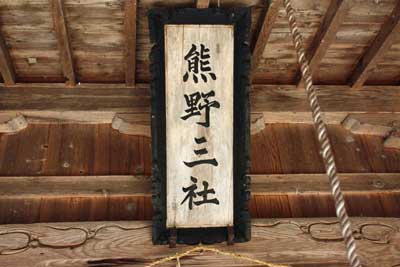 熊野三社